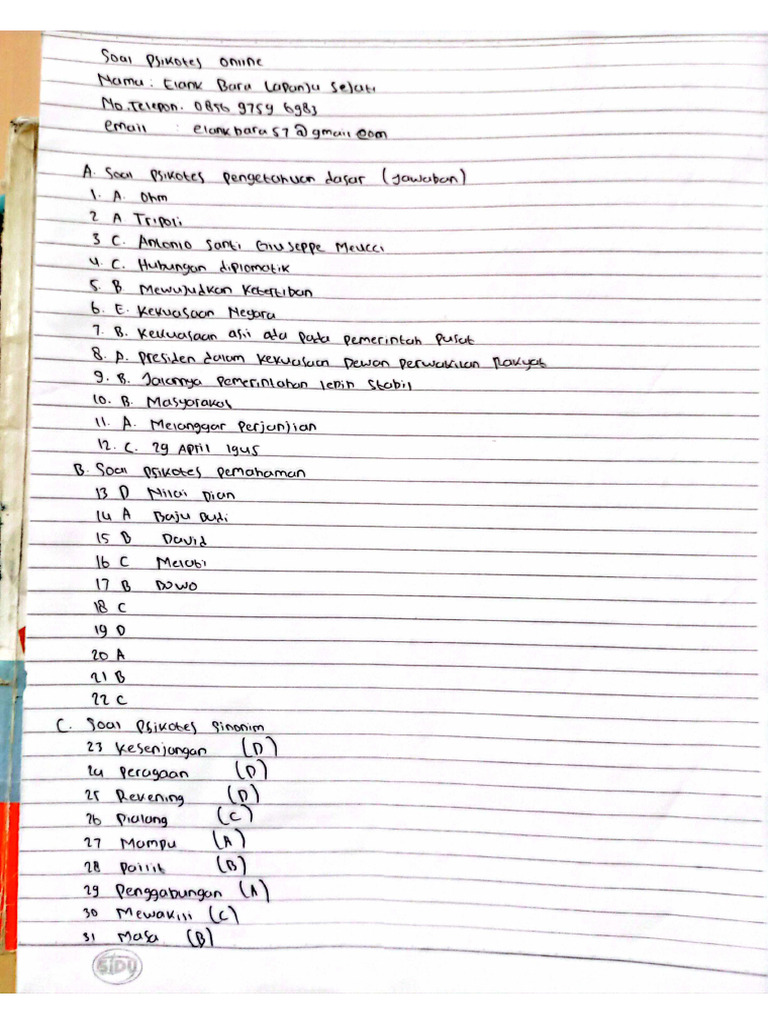 Soal Psikotes Online
Nama : Elank Bara Lapanju Sejati
No. Telepon. 0856 9759 6983
email : elankbara57@gmail.com
A. Soal Psikotes pengetahuan dasar (Jawaban)
1. A. Ohm
2 A Tripoli
3 C. Antonio Santi Giuseppe Meucci
4. C. Hubungan diplomatik
5. B Mewujudkan Ketertiban
6. E. Kekuasaan Negara
7. B. Kekuasaan asli ada pada pemerintah pusat
8. A. presiden dalam kekuasaan Dewan perwakilan Rakyat
9. B. Jalannya pemerintahan lebih stabil
10. B. Masyarakat
11. A. Melanggar Perjanjian
12. C. 29 April 1945
B. Soal Psikotes pemahaman
13 D Nilai Dian
14 A Baju Dudi
15 B David
16 C Melati
17 B Dowo
18 C
19 D
20 A
21 B
22 C
C. Soal Psikotes Sinonim
23 Kesenjangan (D)
24 Peragaan (D)
25 Rekening (D)
26 Pialang (C)
27 Mampu (A)
28 Pailit (B)
29 Penggabungan (A)
30 Mewakili (C)
31 Masa (B)
SIDU